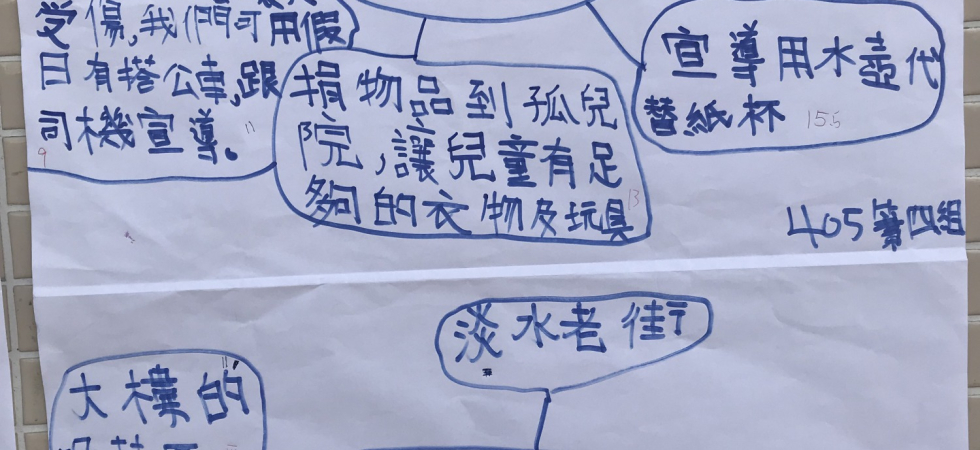 受傷,我們可用假
日有搭公車,跟
司機宣導。
11
9
捐物品到孤兒
院,讓兒童有足
夠的衣物及玩具
13
宣導用水壺代
替紙杯 15.5
405第四組
淡水老街
大樸的